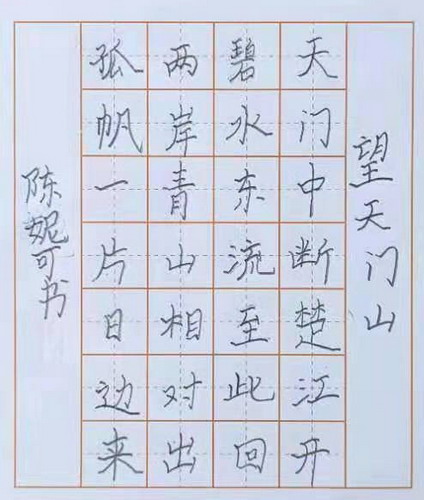 望天门山
天门中断楚江开
碧水东流至此回
两岸青山相对出
孤帆一片日边来
陈妮可书